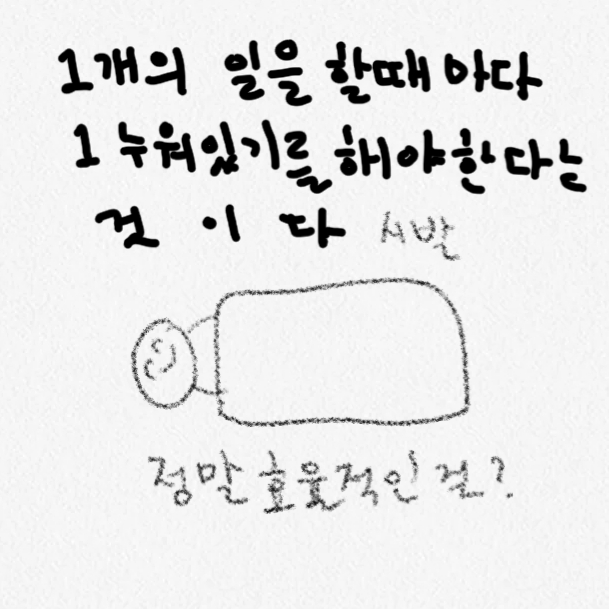 1개의 일을 할때 마다
1 누워있기를 해야한다는
것이다 시발
정말 효율적인 걸?